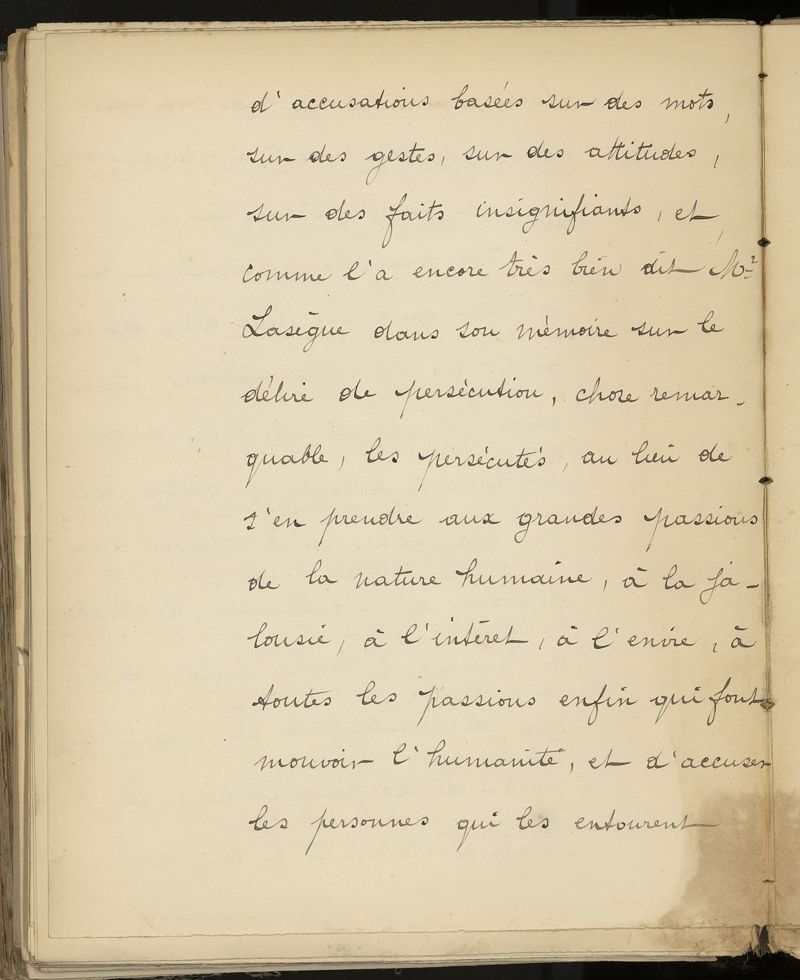 d'accusations basées sur des mots,
sur des gestes, sur des attitudes,
sur des faits insignifiants, et,
comme l'a encore très bien dit Mr
Lasègue dans son mémoire sur le
délire de persécution, chose remar-
quable, les persécutés, au lieu de
s'en prendre aux grandes passions
de la nature humaine, à la ja-
lousie, à l'intéret, à l'envie, à
toutes les passions enfin qui font
mouvoir l'humanité, et d'accuser
les personnes qui les entourent